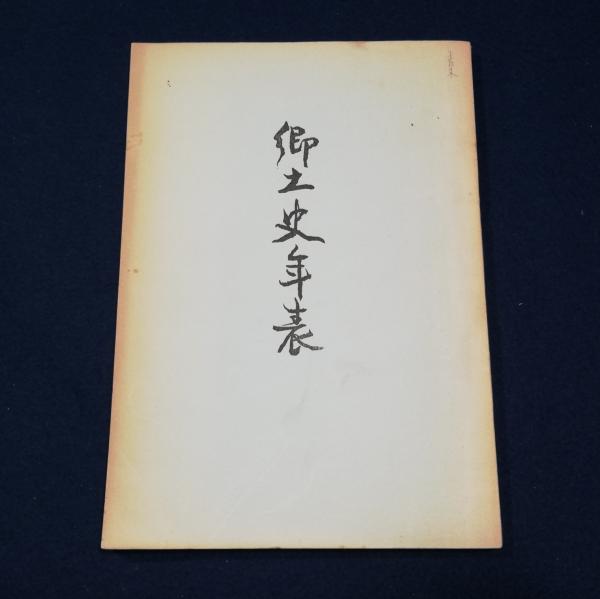 郷土史年表